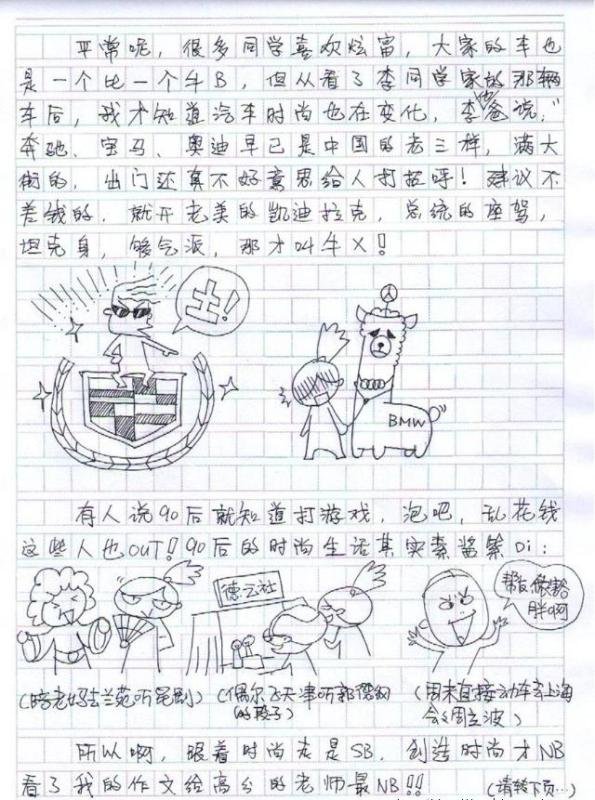 平常呢，很多同学喜欢炫富，大家的车也
是一个比一个牛B，但从看了李同学家的那辆
车后，我才知道汽车时尚也在变化，李他爸说，"
奔驰、宝马、奥迪早已是中国的老三样，满大
街的，出门还真不好意思给人打招呼！建议不
差钱的，就开老美的凯迪拉克，总统的座驾，
坦克身，够气派，那才叫牛X！
土！
BMW
有人说90后就知道打游戏，泡吧，乱花钱
这些人也OUT！90后的时尚生活其实素酱紫Di：
德云社
帮
胖啊
(陪老妈去兰苑听昆剧)
(偶尔飞天津听郭德纲
的段子)
(周末直接动车去上海
会会周立波)
所以啊，跟着时尚走是SB，创造时尚才NB
看了我的作文给高分的老师最NB！！
(请转下页…)